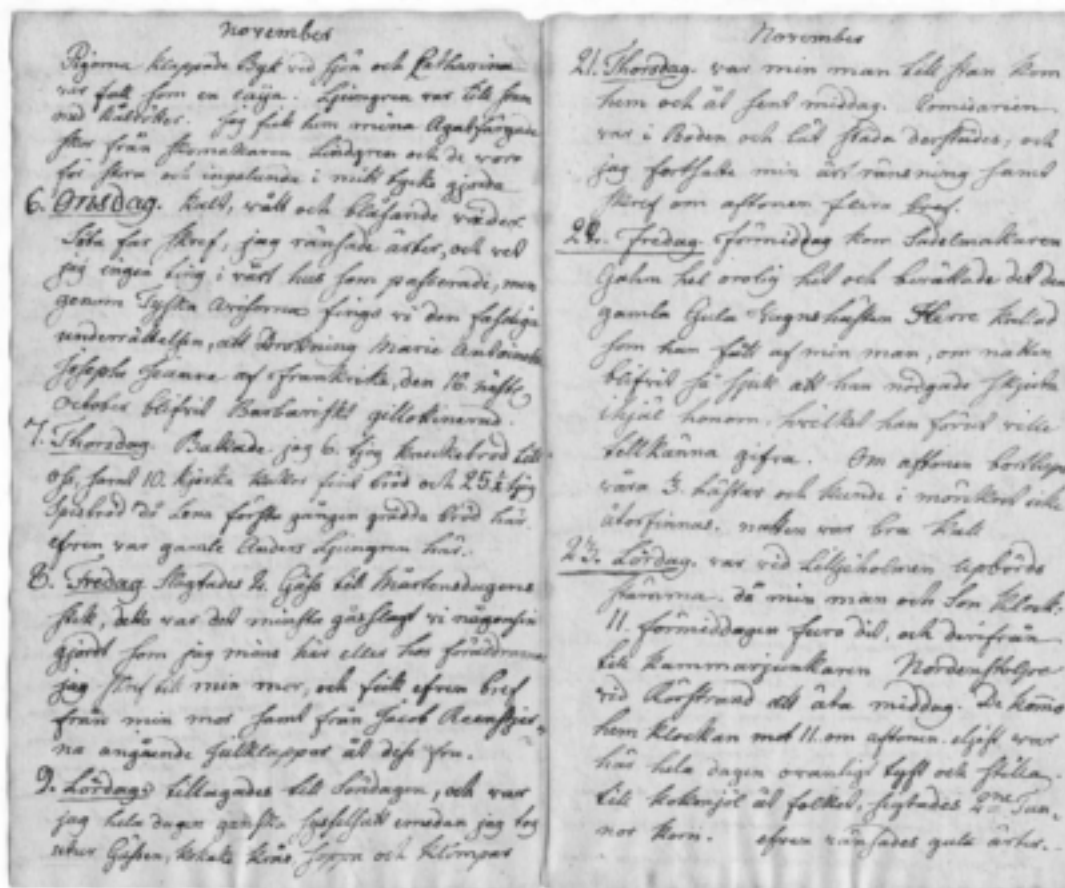 November
Pigorna klappade Byk vid sjön och Catharina
var full som en kaija. Ljungren var till stan
med . jag fick hem mina Agatfärgade
skor från skomakaren Lindgren och de voro
för stora och ingalunda i mitt tycke gjorda
6. Onsdag. kalt, vått och blåsande väder.
far skref, jag ränsade ärter, och vet
jag ingen ting i vårt hus som passerade, men
genom Tyska Aviserna fingo vi den faseliga
underrättelsen, att Drottning Marie Antoinette
Josepha Jeanne af Frankrike, den 16. näst
October blifvit Barbariskt gillotinerad.
7. Thorsdag. Bakade jag 6. tjog knäckebröd till
oss, samt 10. kakor fint bröd och 25 ½ tjog
spisbröd då Lena första gången grädda bröd här.
efven var gamle Anders Ljungren här.
8. Fredag slagtades 2. Gäss till Mårtensdagens
stek, detta var det minsta gåsslagt vi någonsin
gjordt som jag mins här eller hos föräldrarna
jag skref till min mor, och fick efven bref
från min mor samt från Jacob Reenstjer=
na angående Julklappar åt dess fru.
9. Lördag tillagades till Söndagen, och var
jag hela dagen ganska sysselsatt emedan jag tog
utur Gåsen, kokade krås, soppa och klimpar
November
21. Thorsdag. var min man till stan kom
hem och åt sent middag. 
var i Boden och lät städa derstädes, och
jag fortsatte min ärt ränsning samt
skref om aftonen flera bref.
22. Fredag. förmiddag kom Sadelmakaren
Galm hel orolig hit och berättade det den
gamla Gula Vagnshästen Herre kallad
som han fått af min man, om natten
blifvit så sjuk att han nödgades skjuta
ihjäl honom, hvilket han förut ville
tillkänna gifva. Om aftonen bortlupo
våra 3. hästar och kunde i mörkret icke
återfinnas. natten var bra kall
23. Lördag. var vid Liljeholmen Upbörds
stämma. då min man och Son klock:
11. förmiddagen foro dit, och derifrån
till Kammarjunkaren Nordenstolpe
vid Rörstrand att äta middag. De kommo
hem klockan mot 11. om aftonen. eljest var
här hela dagen ovanligt tyst och stilla.
till kokmjöl åt folket, sigtades 2ne Tun,
nor korn. efven ränsades gula ärter.